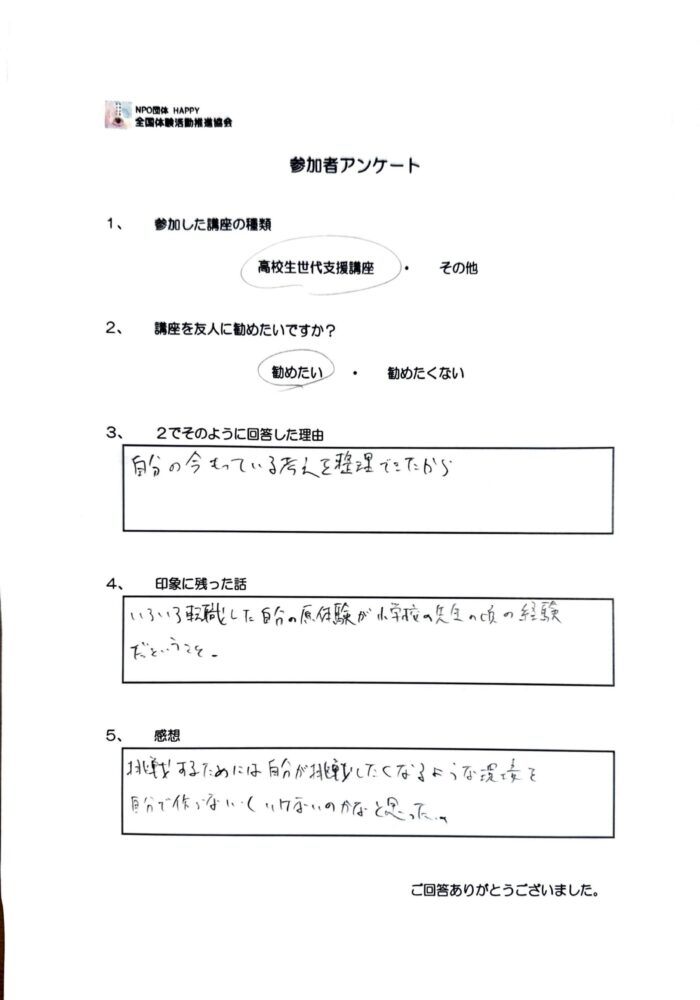 NPO団体 HAPPY
全国体験活動推進協会
参加者アンケート
1、 参加した講座の種類
高校生世代支援講座 ・ その他
2、 講座を友人に勧めたいですか？
勧めたい ・ 勧めたくない
3、 2でそのように回答した理由
自分の今もっている考えを整理できたから
4、 印象に残った話
いろいろ転職した自分の原体験が小学校の先生の頃の経験
だということ。
5、 感想
挑戦するためには自分が挑戦したくなるような環境を
自分で作らないといけないのかなと思った。
ご回答ありがとうございました。